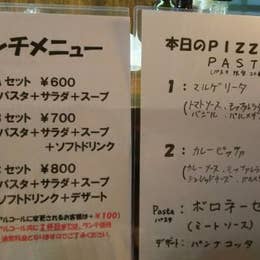 ンチメニュー
セット ￥600
パスタ＋サラダ＋スープ
セット ￥700
パスタ＋サラダ＋スープ
＋ソフトドリンク
セット ￥800
パスタ＋サラダ＋スープ
＋ソフトドリンク＋デザート
アルコールに変更されるお客様は＋￥100
本日のPIZZ
PAST
1：マルゲリータ
(トマトソース、モッツァレラ
バジル、パルメザ
2：カレーピッツァ
(カレーソース、モッツァレラ
Pasta：ボロネーゼ
パスタ
(ミートソース)
デザート：パンナコッタ